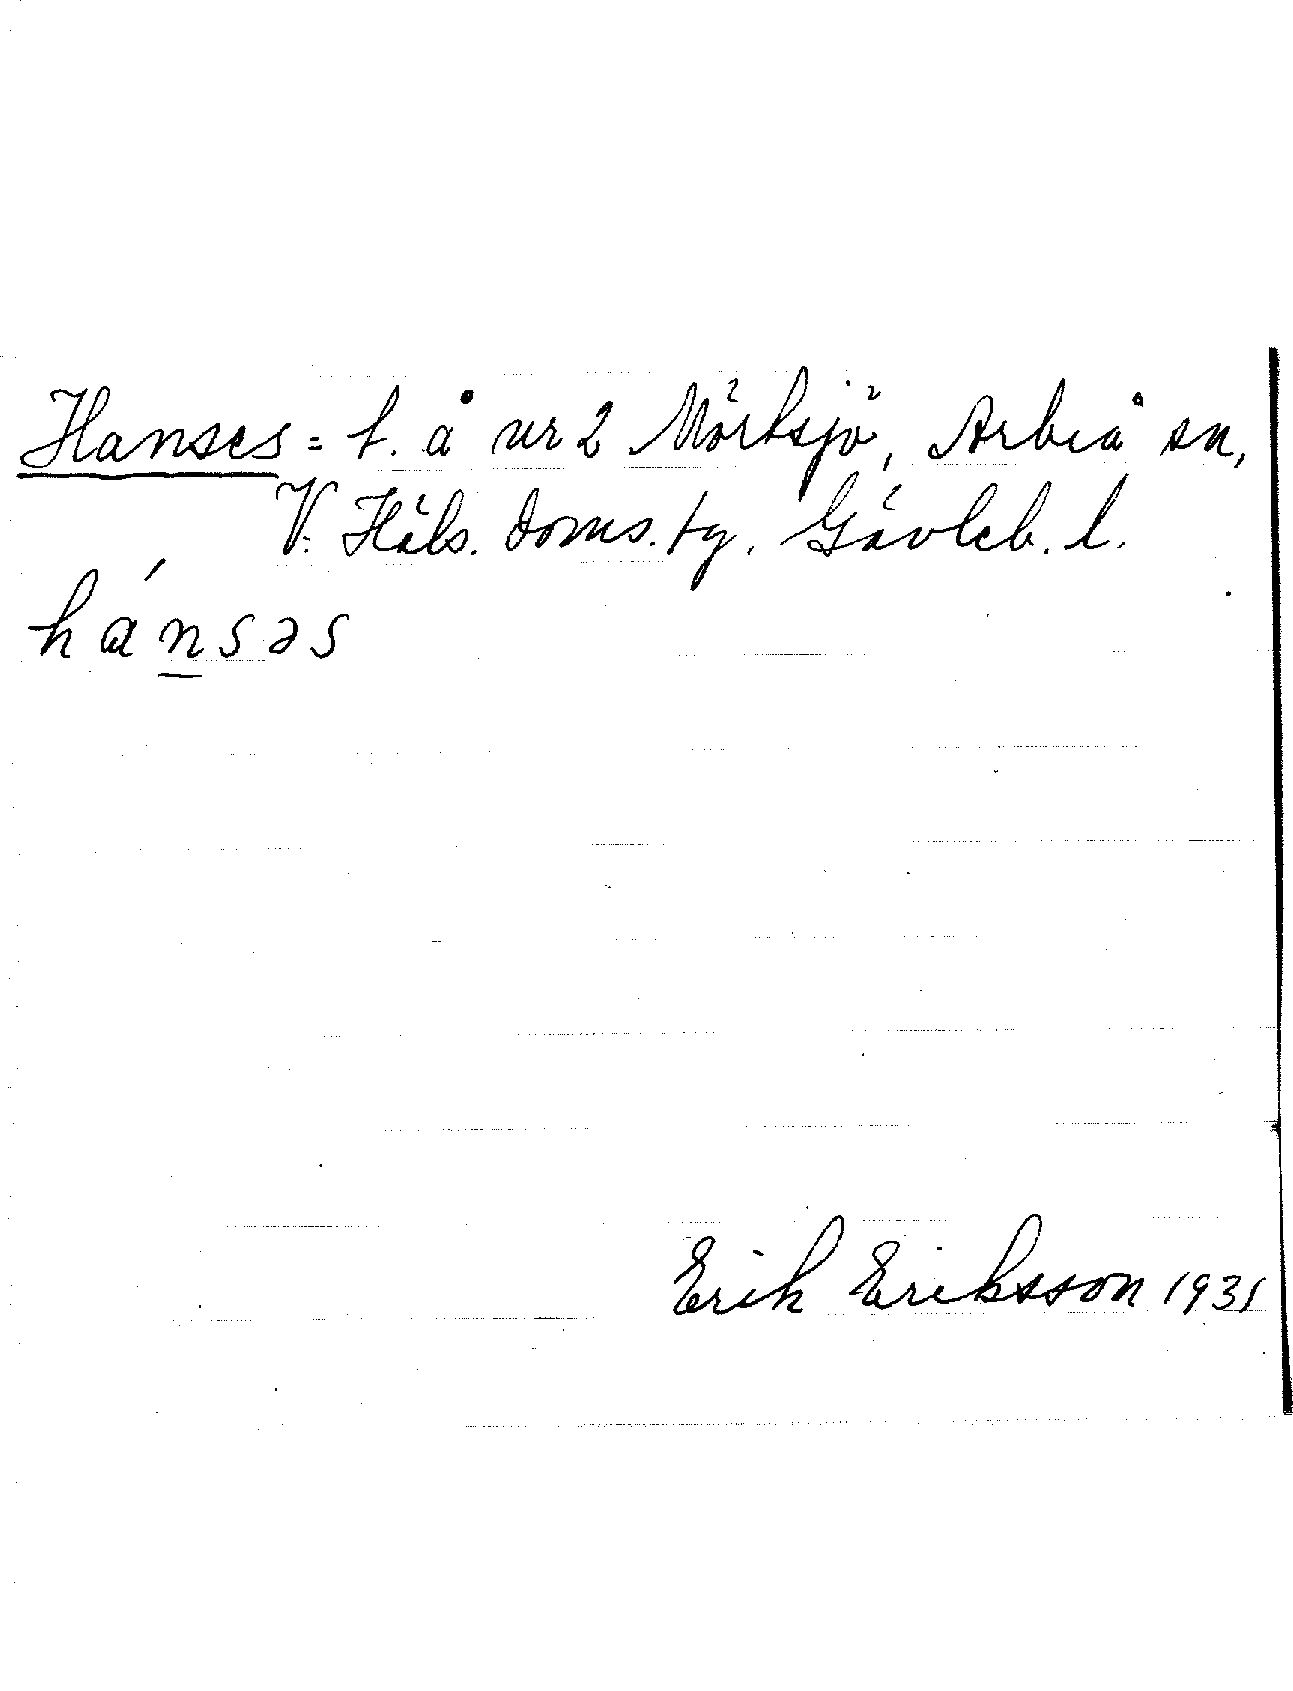 Hanses = t. å nr 2 Mörtsjö, Arbrå sn,
V. Häls. doms. tg, Gävleb. l.
hánsəs
Erik Eriksson 1931